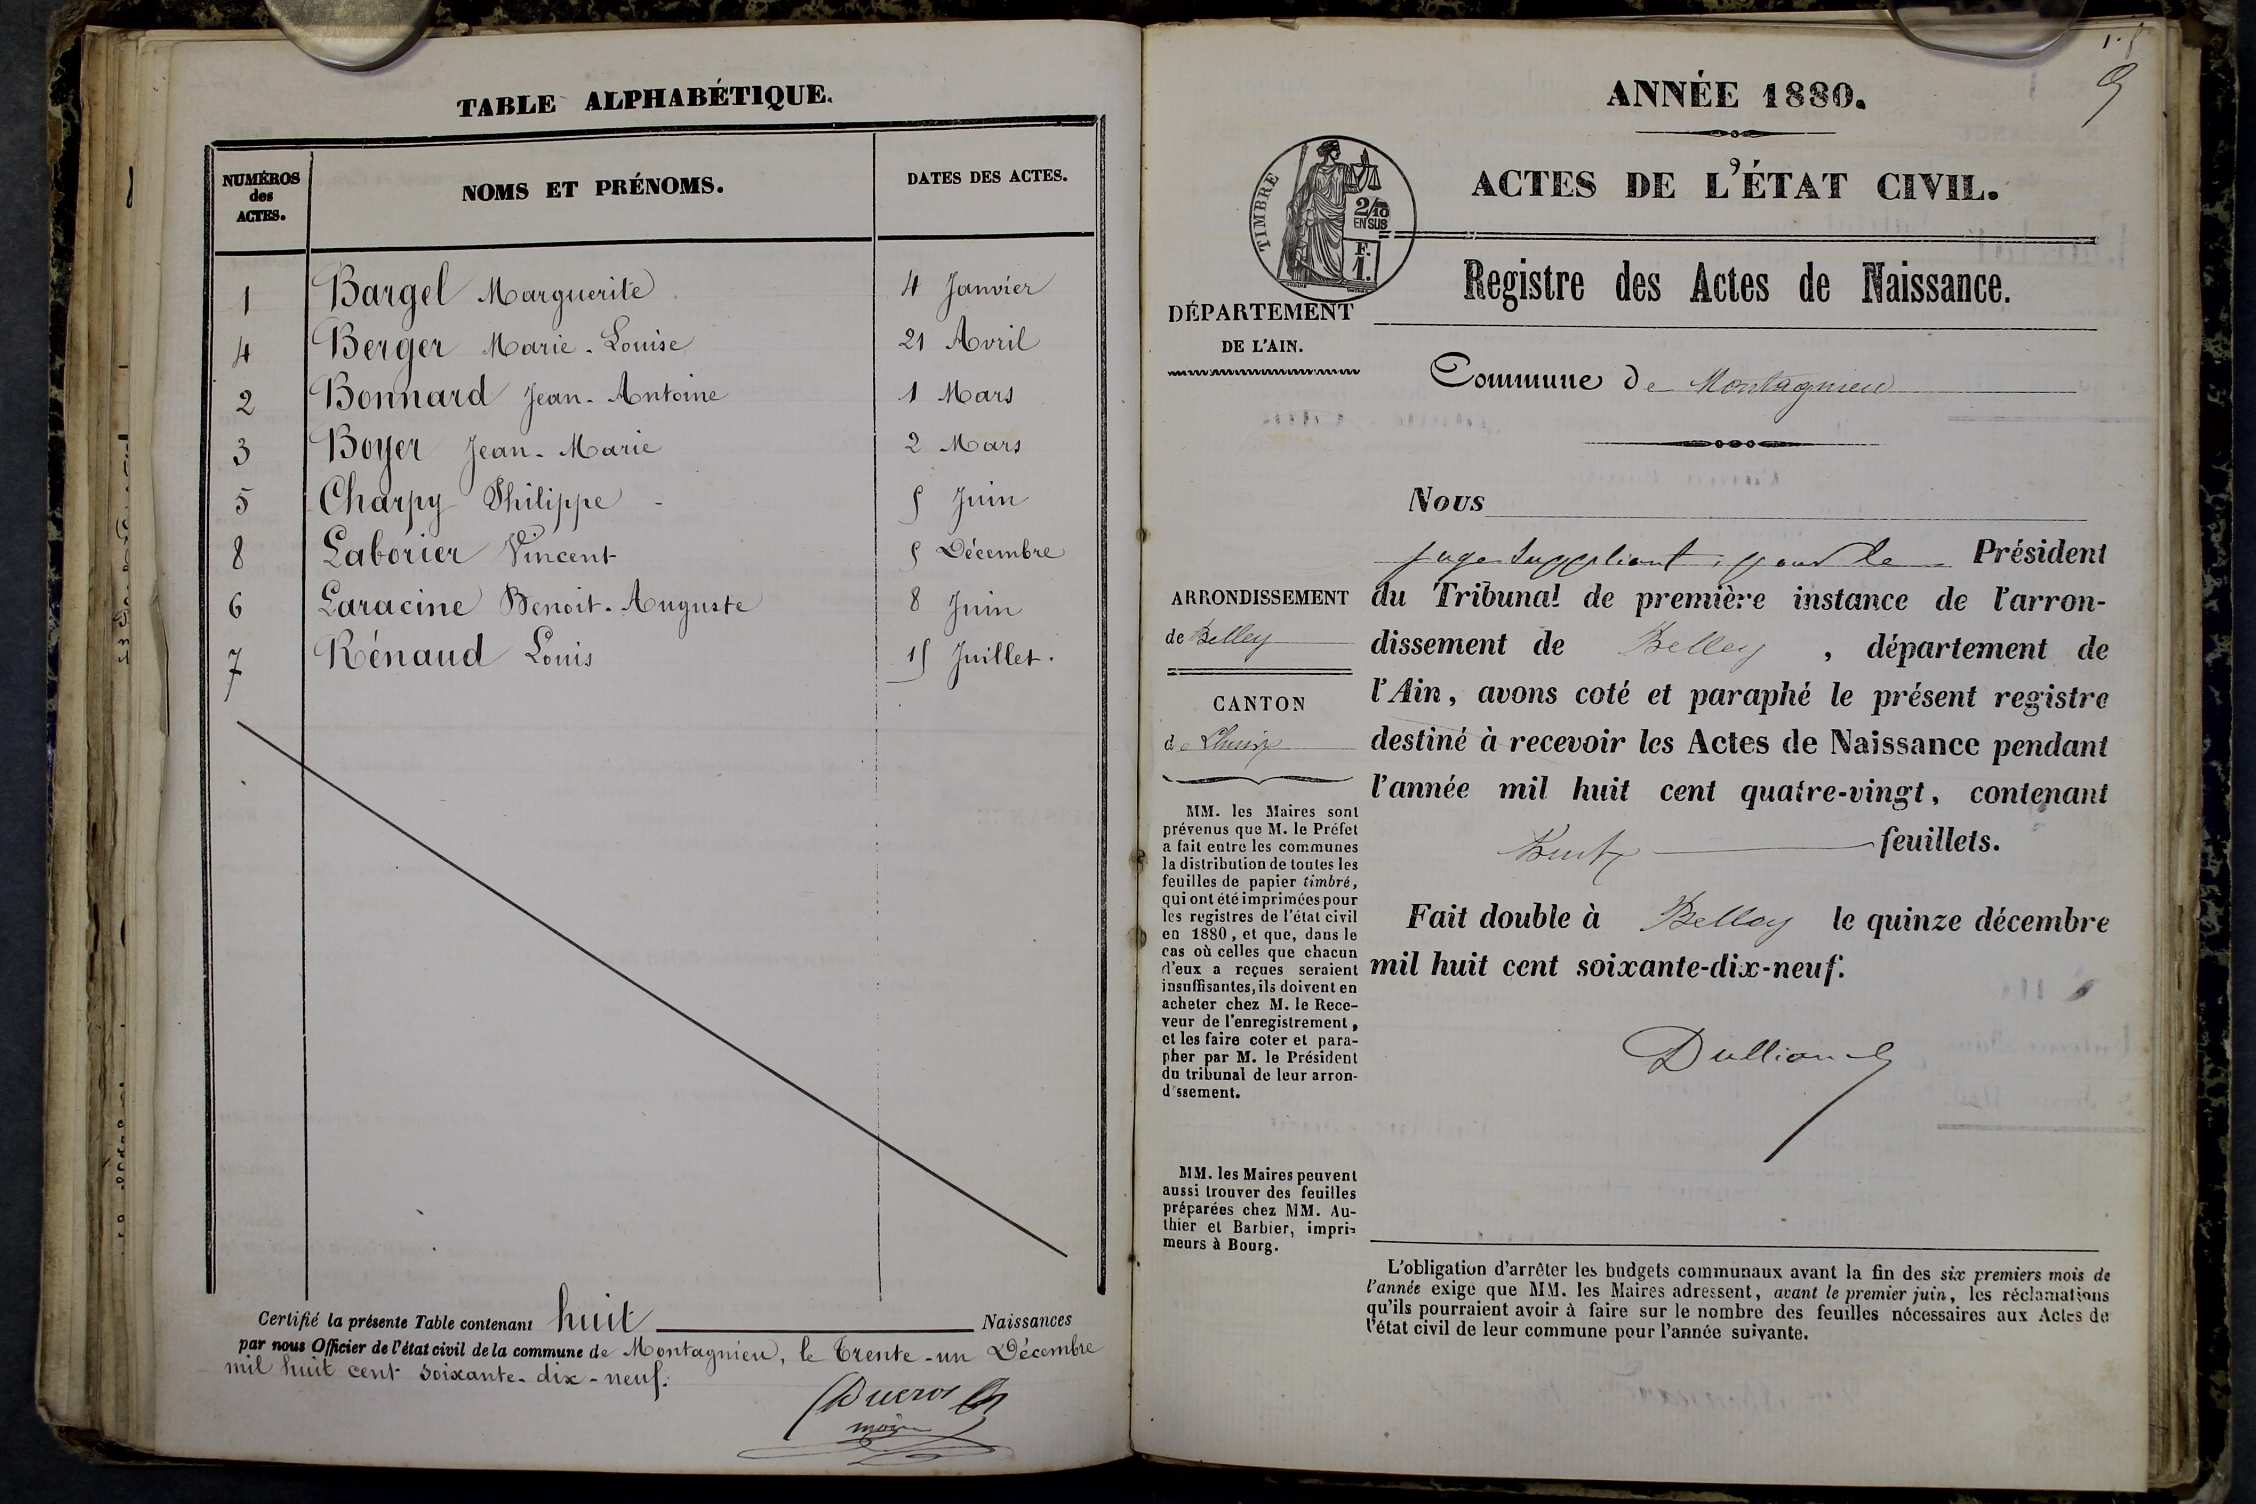 TABLE ALPHABÉTIQUE.
NUMÉROS
des
ACTES.
NOMS ET PRÉNOMS.
DATES DES ACTES.
1 Bargel Marguerite 4 Janvier
4 Berger Marie-Louise 21 Avril
2 Bonnard Jean-Antoine 1 Mars
3 Boyer Jean-Marie 2 Mars
5 Charpy Philippe 5 Juin
8 Laborier Vincent 5 Décembre
6 Laracine Benoit-Auguste 8 Juin
7 Rénaud Louis 15 Juillet.
Certifié la présente Table contenant huit Naissances
par nous Officier de l'état civil de la commune de Montagnieu, le trente-un Décembre
mil huit cent soixante-dix-neuf.
Ducros
maire
9
ANNÉE 1880.
ACTES DE L'ÉTAT CIVIL.
TIMBRE
2/10
EN SUS
F.
1.
Registre des Actes de Naissance.
DÉPARTEMENT
DE L'AIN.
Commune de Montagnieu
Nous
juge suppléant, pour le Président
du Tribunal de première instance de l'arron-
dissement de Belley, département de
l'Ain, avons coté et paraphé le présent registre
destiné à recevoir les Actes de Naissance pendant
l'année mil huit cent quatre-vingt, contenant
huit feuillets.
Fait double à Belley le quinze décembre
mil huit cent soixante-dix-neuf.
ARRONDISSEMENT
de Belley
CANTON
de Lhuis
MM. les Maires sont
prévenus que M. le Préfet
a fait entre les communes
la distribution de toutes les
feuilles de papier timbré,
qui ont été imprimées pour
les registres de l'état civil
en 1880, et que, dans le
cas où celles que chacun
d'eux a reçues seraient
insuffisantes, ils doivent en
acheter chez M. le Rece-
veur de l'enregistrement,
et les faire coter et para-
pher par M. le Président
du tribunal de leur arron-
d'ssement.
MM. les Maires peuvent
aussi trouver des feuilles
préparées chez MM. Au-
thier et Barbier, impri-
meurs à Bourg.
L'obligation d'arrêter les budgets communaux avant la fin des six premiers mois de
l'année exige que MM. les Maires adressent, avant le premier juin, les réclamations
qu'ils pourraient avoir à faire sur le nombre des feuilles nécessaires aux Actes de
l'état civil de leur commune pour l'année suivante.